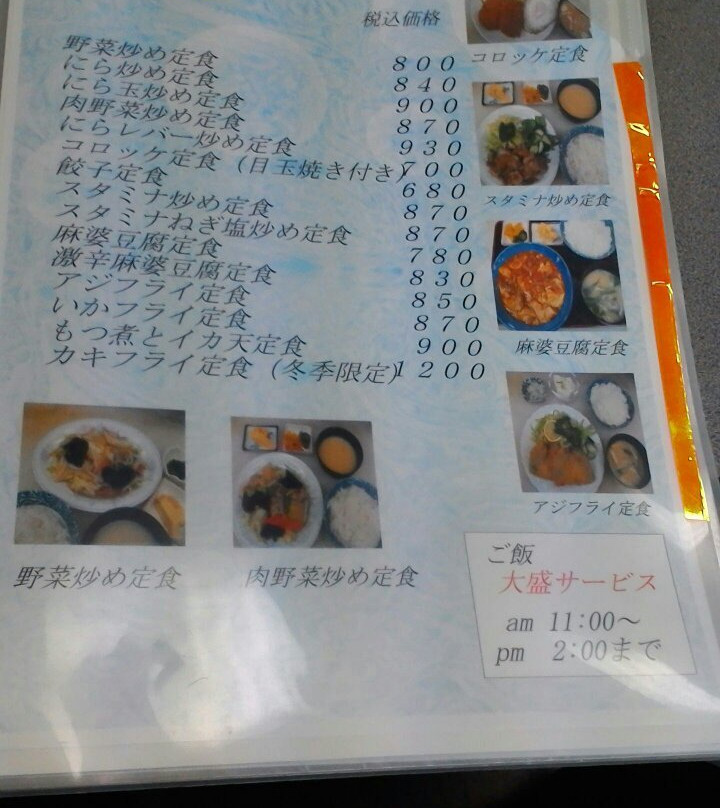 税込価格
野菜炒め定食 800
にら炒め定食 840
にら玉炒め定食 900
肉野菜炒め定食 870
にらレバー炒め定食 930
コロッケ定食（目玉焼き付き） 700
餃子定食 680
スタミナ炒め定食 870
スタミナねぎ塩炒め定食 870
麻婆豆腐定食 780
激辛麻婆豆腐定食 830
アジフライ定食 850
いかフライ定食 870
もつ煮とイカ天定食 900
カキフライ定食（冬季限定） 1200
コロッケ定食
スタミナ炒め定食
麻婆豆腐定食
アジフライ定食
野菜炒め定食
肉野菜炒め定食
ご飯
大盛サービス
am 11:00～
pm 2:00まで